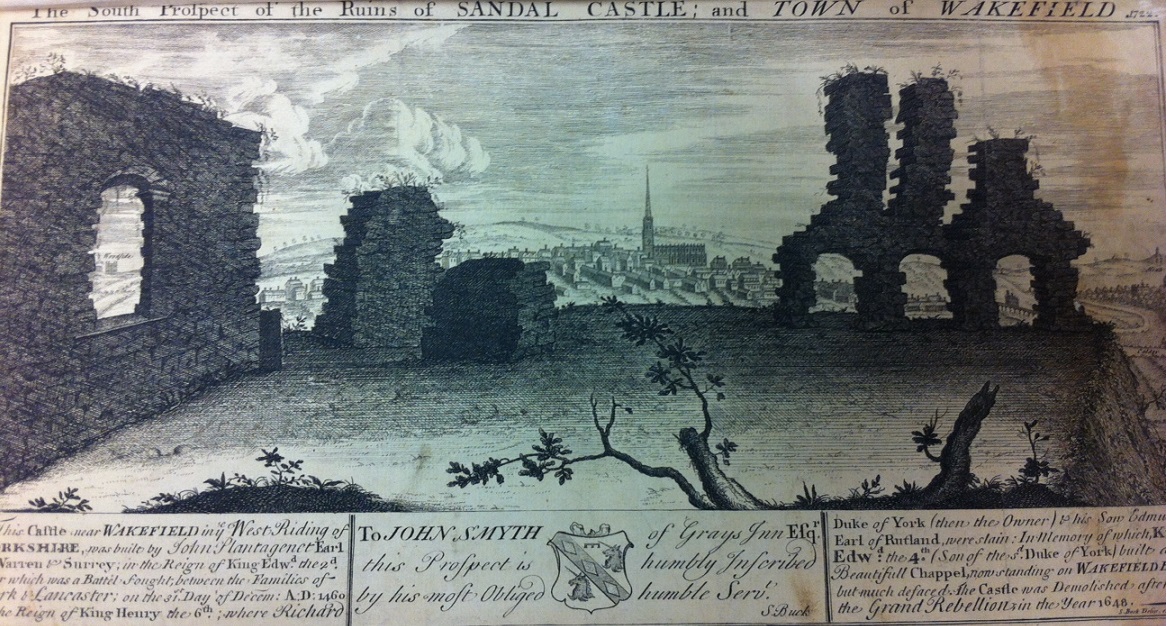 The South Prospect of the Ruins of SANDAL CASTLE; and TOWN of WAKEFIELD 1722.
Westgate
This Castle near WAKEFIELD in yᵉ West-Riding of
RKSHIRE, was built by John Plantagenet Earl
Warren & Surrey; in the Reign of King Edwᵈ the 2ᵈ
r which was a Battel Fought between the Families of
rk & Lancaster; on the Day of Decem: A.D: 1460
he Reign of King Henry the 6ᵗʰ; where Richard
To JOHN SMYTH of Grays Inn Esqʳ
this Prospect is humbly Inscribed
by his most Obliged humble Servᵗ.
S. Buck
Duke of York (then the Owner) & his Son Edmu
Earl of Rutland, were slain: In Memory of which, K
Edwᵈ. the 4ᵗʰ. (Son of the sᵈ. Duke of York) built a
Beautifull Chappel, now standing on WAKEFIELD B
but much defaced. the Castle was Demolished after
the Grand Rebellion in the Year 1648.
S. Buck Delin.